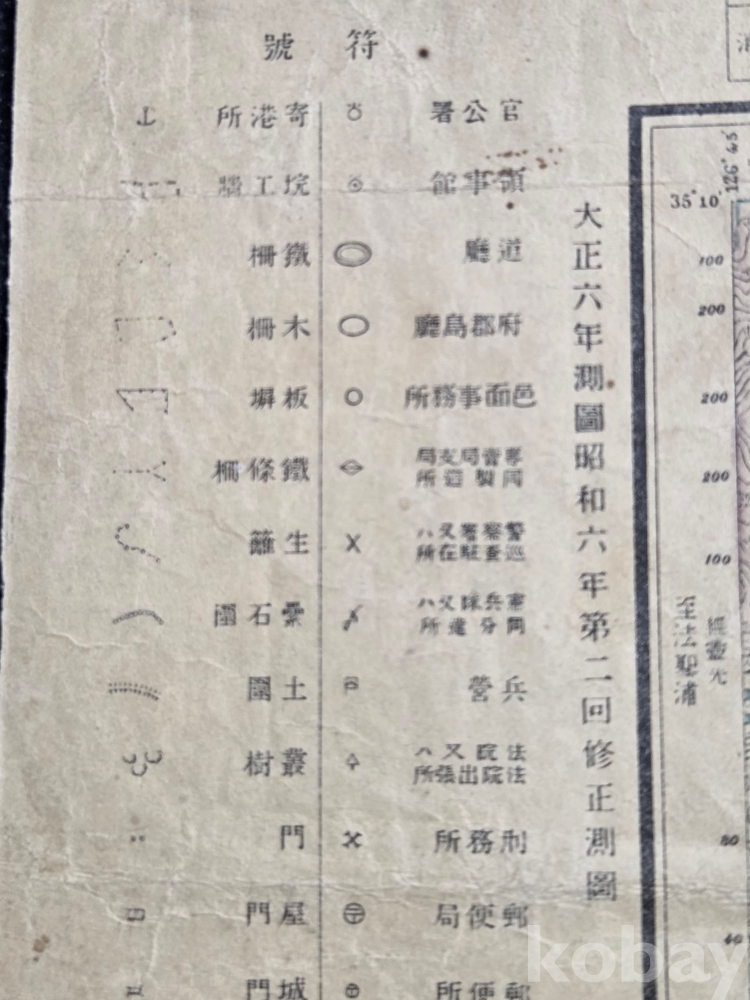 符號
官公署
領事館
道廳
府郡島廳
邑面事務所
專賣局支局
同製造所
警察署又ハ
巡査駐在所
憲兵隊又ハ
同分遣所
兵營
法院又ハ
法院出張所
刑務所
郵便局
郵便所
寄港所
垸工牆
鐵柵
木柵
板塀
鐵條柵
生籬
纍石圍
土圍
叢樹
門
屋門
城門
大正六年測圖昭和六年第二回修正測圖
126°45′
35°10′
100
200
200
200
100
80
40
經靈光
至法聖浦
kobay